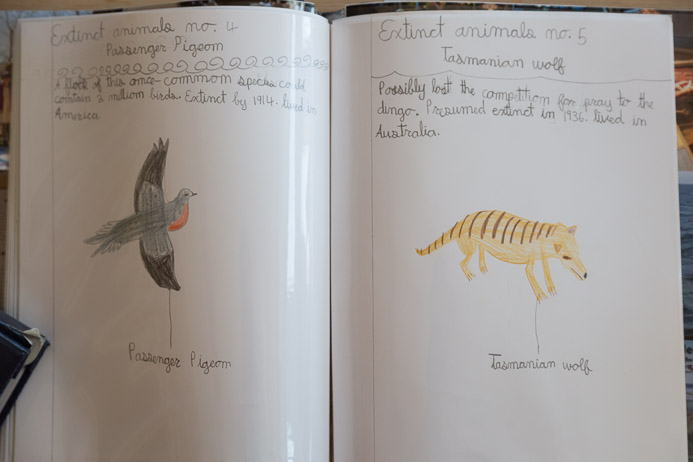 Extinct animals no. 4
Passenger Pigeom
A flock of this once-common species could
contain 2 million birds. Extinct by 1914. lived in
America
Passenger Pigeom
Extinct animals no. 5
Tasmanian wolf
Possibly lost the competition for pray to the
dingo. Presumed extinct in 1936. lived in
Australia.
Tasmanian wolf